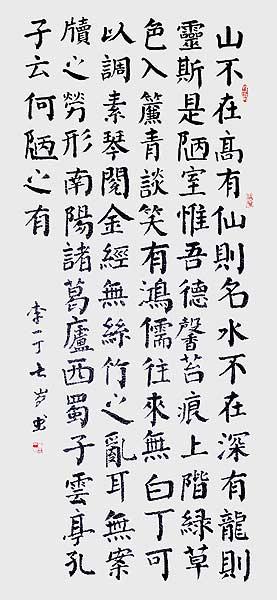 山不在高有仙則名水不在深有龍則
靈斯是陋室惟吾德馨苔痕上階綠草
色入簾青談笑有鴻儒往來無白丁可
以調素琴閱金經無絲竹之亂耳無案
牘之勞形南陽諸葛廬西蜀子雲亭孔
子云何陋之有
李一丁七岁